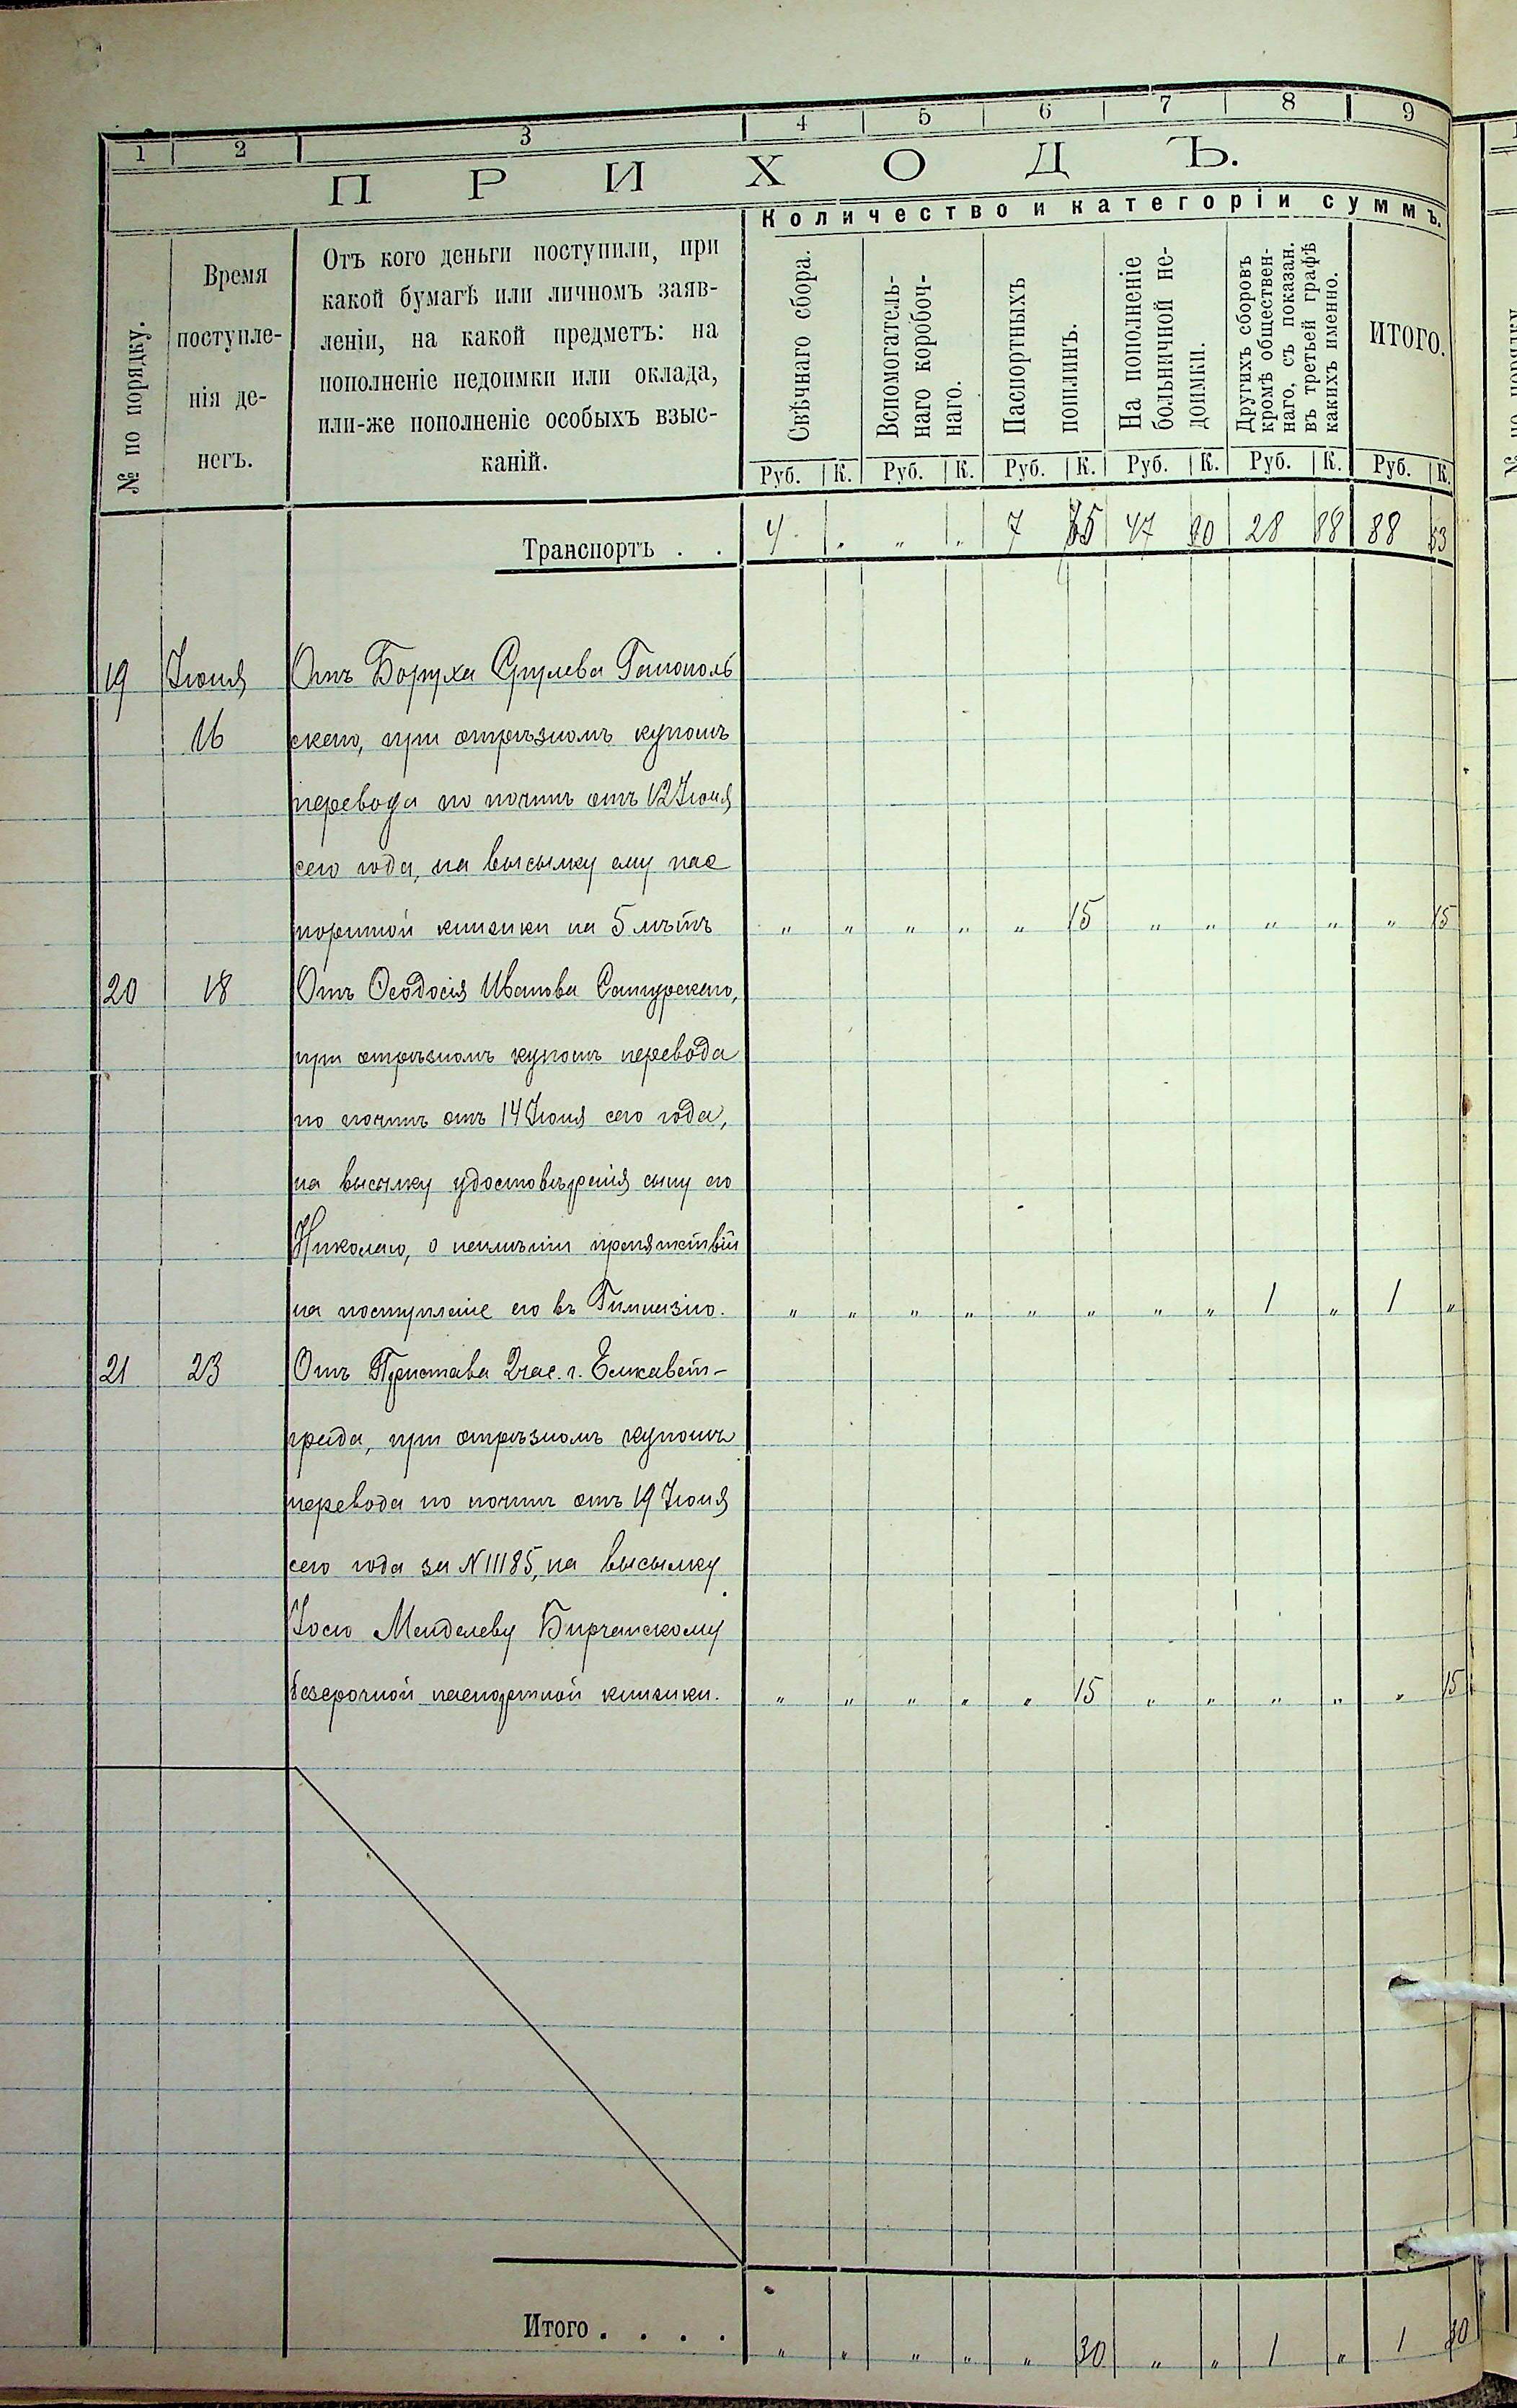 1 2 3 4 5 6 7 8 9
ПРИХОДЪ.
Количество и категоріи суммъ.
№ по порядку.
Время
поступле-
нія де-
негъ.
Отъ кого деньги поступили, при
какой бумагѣ или личномъ заяв-
леніи, на какой предметъ: на
пополненіе недоимки или оклада,
или-же пополненіе особыхъ взыс-
каній.
Свѣчнаго сбора.
Вспомогатель-
наго коробоч-
наго.
Паспортныхъ
пошлинъ.
На пополненіе
больничной не-
доимки.
Другихъ сборовъ
кромѣ обществен-
наго, съ показан.
въ третьей графѣ
какихъ именно.
ИТОГО.
Руб. К. Руб. К. Руб. К. Руб. К. Руб. К. Руб. К.
Транспортъ . . 4 „ „ „ 7 47 28 88 88 53
19 Іюня Отъ Боруха Срулева Гайсополь
16 скаго, при отрѣзномъ купонѣ
перевода по почтѣ отъ 12 Іюня
сего года, на высылку ему пас
портной книжки на 5 лѣтъ „ „ „ „ „ 15 „ „ „ „ „ 15
20 18 Отъ Ѳеодосія Иванова
при отрѣзномъ купонѣ перевода
по почтѣ отъ 14 Іюня сего года,
на высылку удостовѣренія сыну его
Николаю, о неимѣніи препятствій
на поступленіе его въ Гимназію. „ „ „ „ „ „ „ „ 1 „ 1 „
21 23 Отъ Пристава 2 час. г. Елисавет-
града, при отрѣзномъ купонѣ
перевода по почтѣ отъ 19 Іюня
сего года за N 11185, на высылку
Іосю Менделеву Бирчанскому
безсрочной паспортной книжки. „ „ „ „ „ 15 „ „ „ „ „ 15
Итого . . . . „ „ „ „ „ 30 „ „ 1 „ 1 30